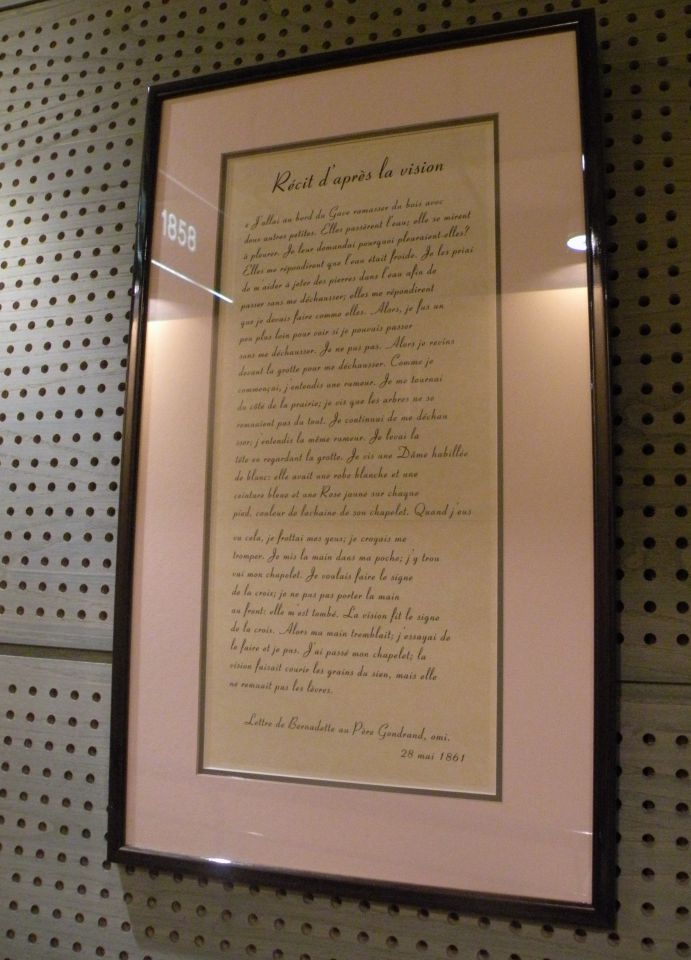 Récit d'après la vision
1858
« J'allai au bord du Gave ramasser du bois avec
deux autres petites. Elles passèrent l'eau; elle se mirent
à pleurer. Je leur demandai pourquoi pleuraient-elles?
Elles me répondirent que l'eau était froide. Je les priai
de m'aider à jeter des pierres dans l'eau afin de
passer sans me déchausser; elles me répondirent
que je devais faire comme elles. Alors, je fus un
peu plus loin pour voir si je pouvais passer
sans me déchausser. Je ne pus pas. Alors je revins
devant la grotte pour me déchausser. Comme je
commençai, j'entendis une rumeur. Je me tournai
du côté de la prairie; je vis que les arbres ne se
remuaient pas du tout. Je continuai de me déchau
sser; j'entendis la même rumeur. Je levai la
tête en regardant la grotte. Je vis une Dâme habillée
de blanc: elle avait une robe blanche et une
ceinture bleue et une Rose jaune sur chaque
pied, couleur de lachaine de son chapelet. Quand j'eus
vu cela, je frottai mes yeus; je croyais me
tromper. Je mis la main dans ma poche; j'y trou
vai mon chapelet. Je voulais faire le signe
de la croix; je ne pus pas porter la main
au front: elle m'est tombé. La vision fit le signe
de la croix. Alors ma main tremblait; j'essayai de
le faire et je pus. J'ai passé mon chapelet; la
vision faisait courir les grains du sien, mais elle
ne remuait pas les lèvres.
Lettre de Bernadette au Père Gondrand, omi.
28 mai 1861